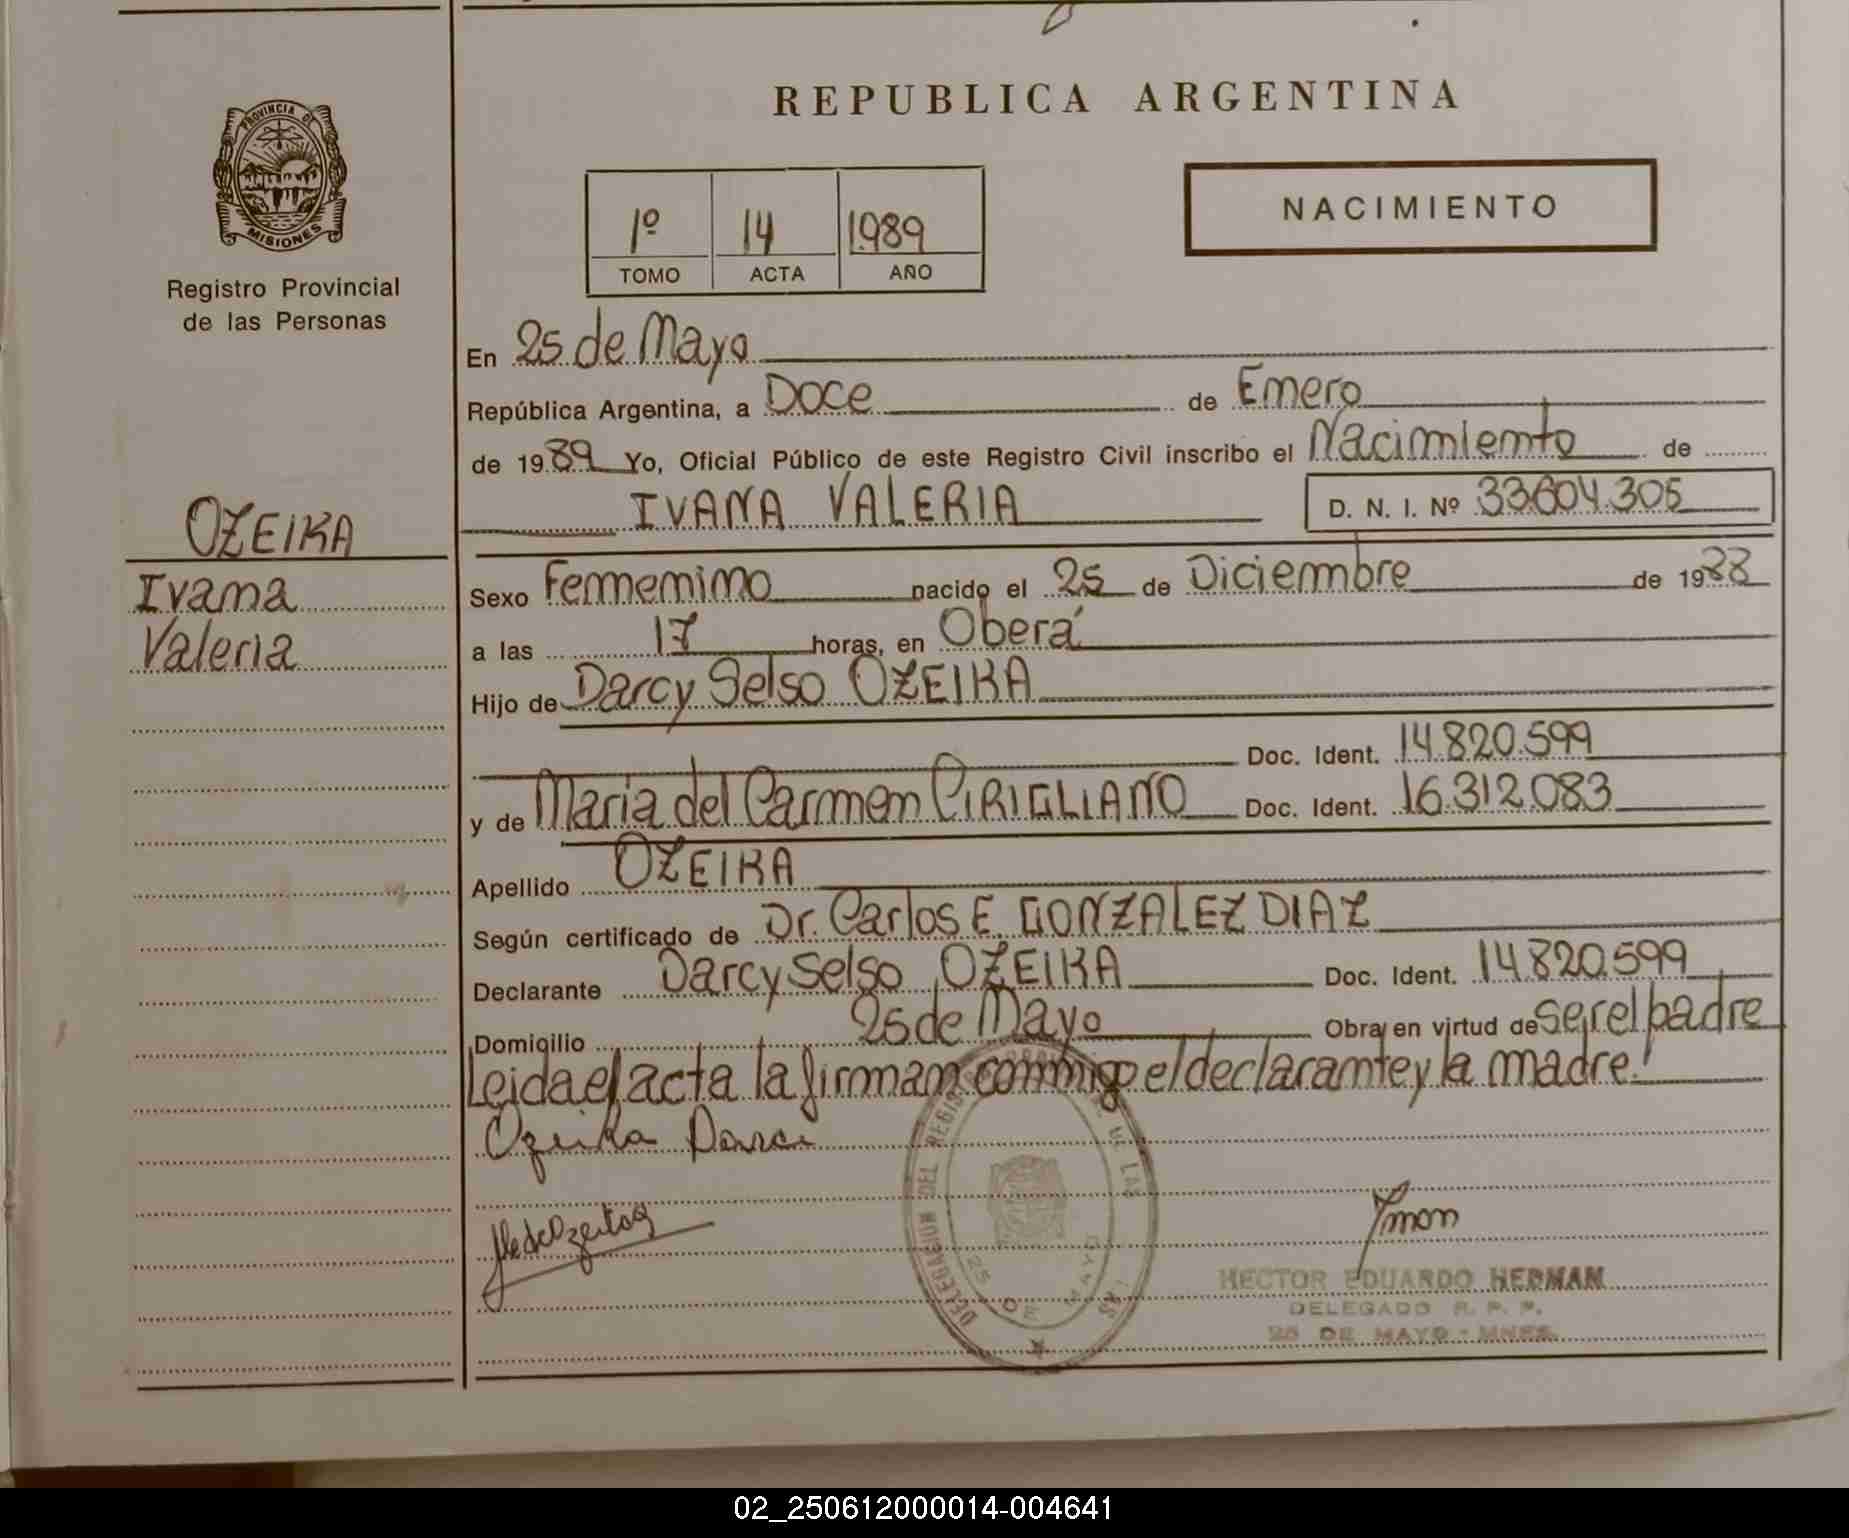 REPUBLICA ARGENTINA
PROVINCIA DE
MISIONES
Registro Provincial
de las Personas
1º 14 1989
TOMO ACTA AÑO
NACIMIENTO
En 25 de Mayo
República Argentina, a Doce de Enero
de 1989 Yo, Oficial Público de este Registro Civil inscribo el Nacimiento de
IVANA VALERIA D. N. I. Nº 33.604.305
OZEIKA
Ivana
Valeria
Sexo Femenino nacido el 25 de Diciembre de 1988
a las 17 horas, en Oberá
Hijo de Darcy Selso OZEIKA
Doc. Ident. 14.820.599
y de Maria del Carmen CIRIGLIANO Doc. Ident. 16.312.083
Apellido OZEIKA
Según certificado de Dr. Carlos E. GONZALEZ DIAZ
Declarante Darcy Selso OZEIKA Doc. Ident. 14.820.599
Domicilio 25 de Mayo Obra en virtud de ser el padre
Leida el acta la firman conmigo el declarante y la madre.
Ozeika Darci
DELEGACION DEL REGISTRO DE LAS
25 DE MAYO
HECTOR EDUARDO HERMAN
DELEGADO R. P. P.
25 DE MAYO - MNES.
02_250612000014-004641